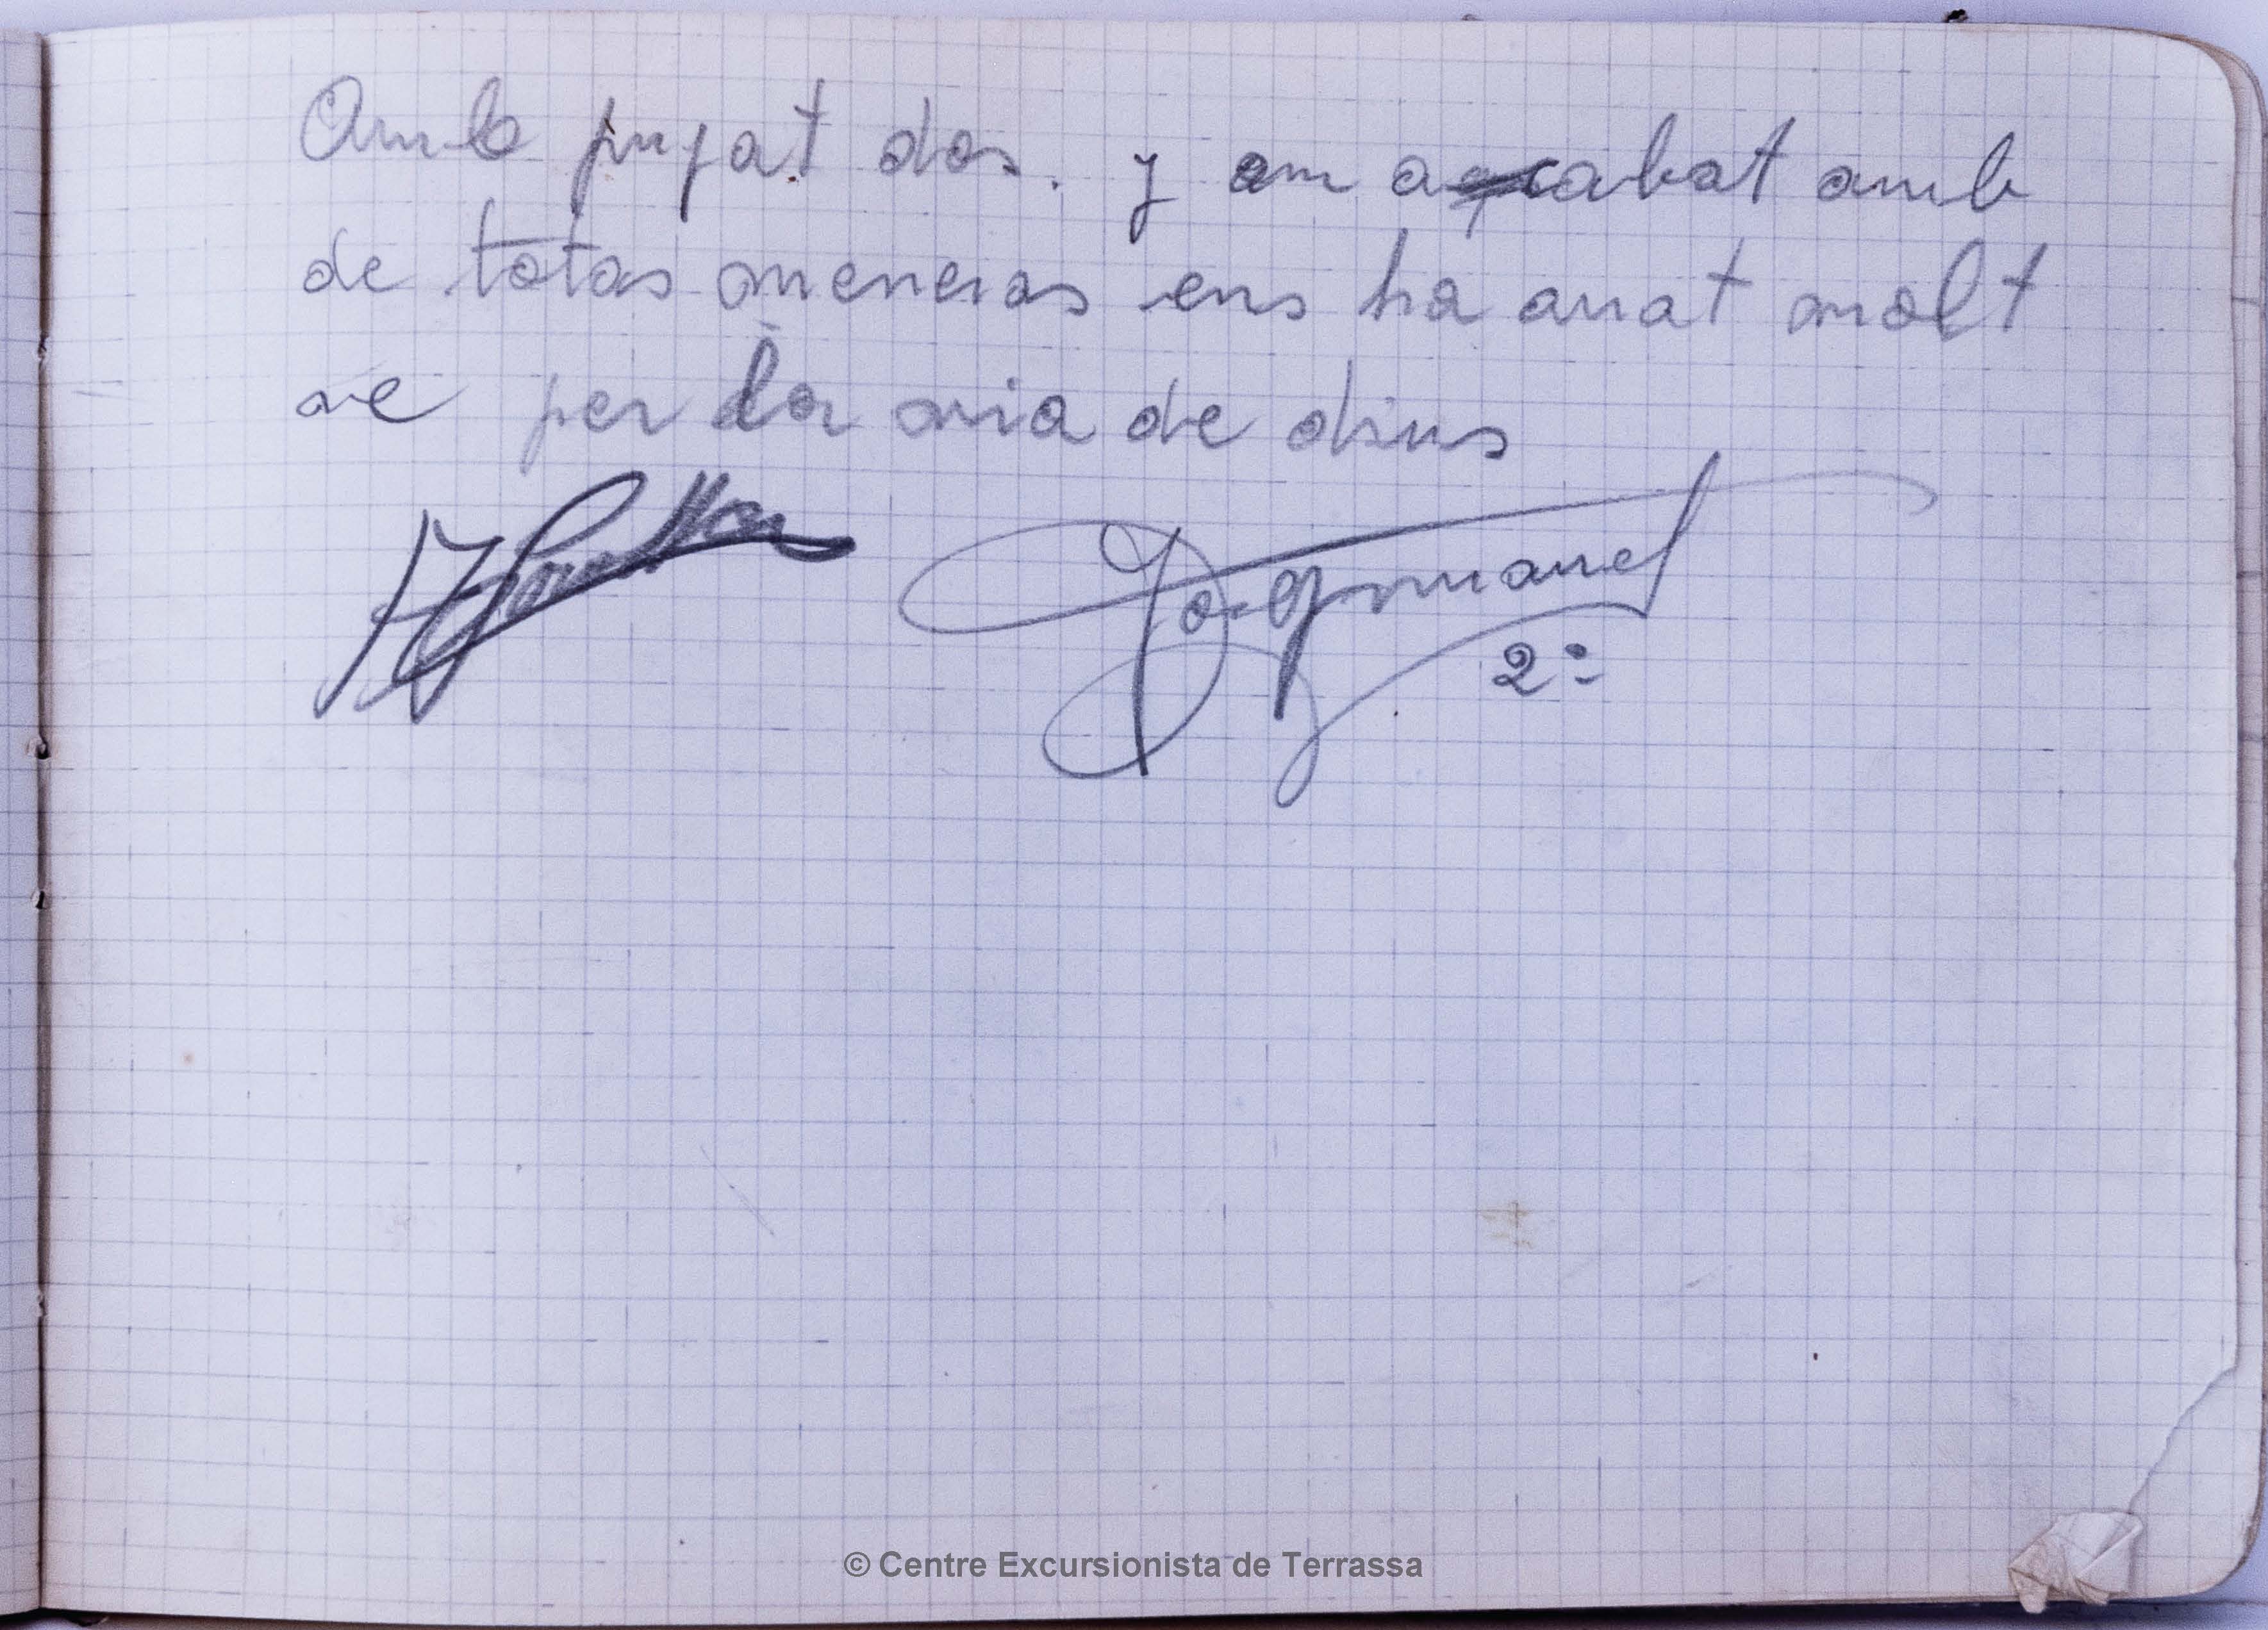 Amb pujat dos. y am acabat amb
de totas meneras ens ha anat molt
ve per la via de dins
Puigmanel
2º
© Centre Excursionista de Terrassa